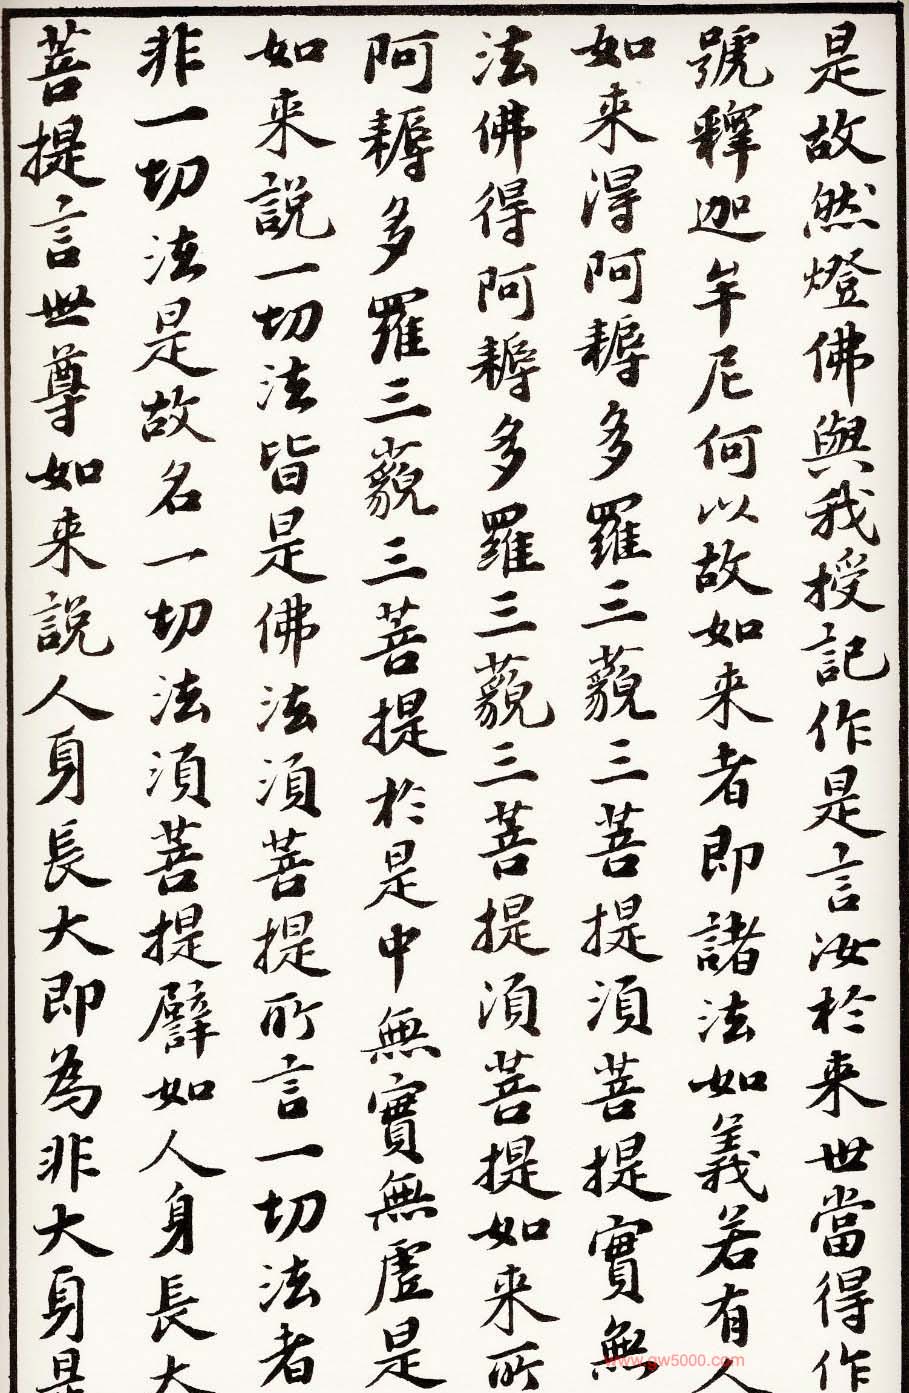 是故然燈佛與我授記作是言汝於来世當得作
號釋迦牟尼何以故如来者即諸法如義若有人
如来得阿耨多羅三藐三菩提須菩提實無
法佛得阿耨多羅三藐三菩提須菩提如来所
阿耨多羅三藐三菩提於是中無實無虛是
如来說一切法皆是佛法須菩提所言一切法者
非一切法是故名一切法須菩提譬如人身長大
菩提言世尊如来說人身長大即為非大身是
www.gw5000.com